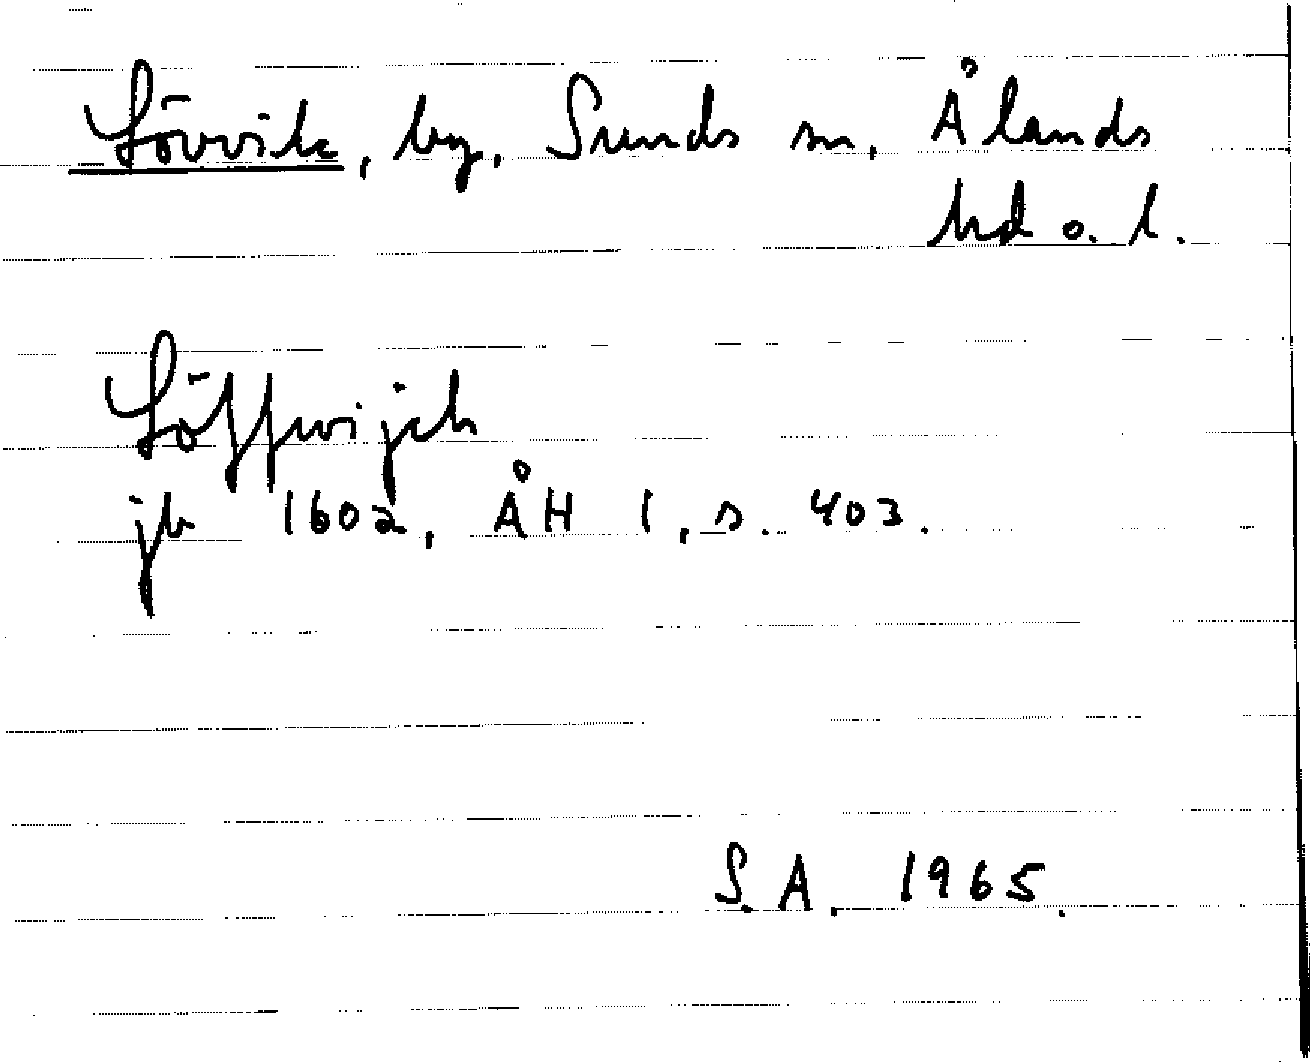 Lövvik, by, Sunds sn, Ålands
hd o. l.
Löffwijch
jb 1602, ÅH 1, s. 403.
S.A. 1965.